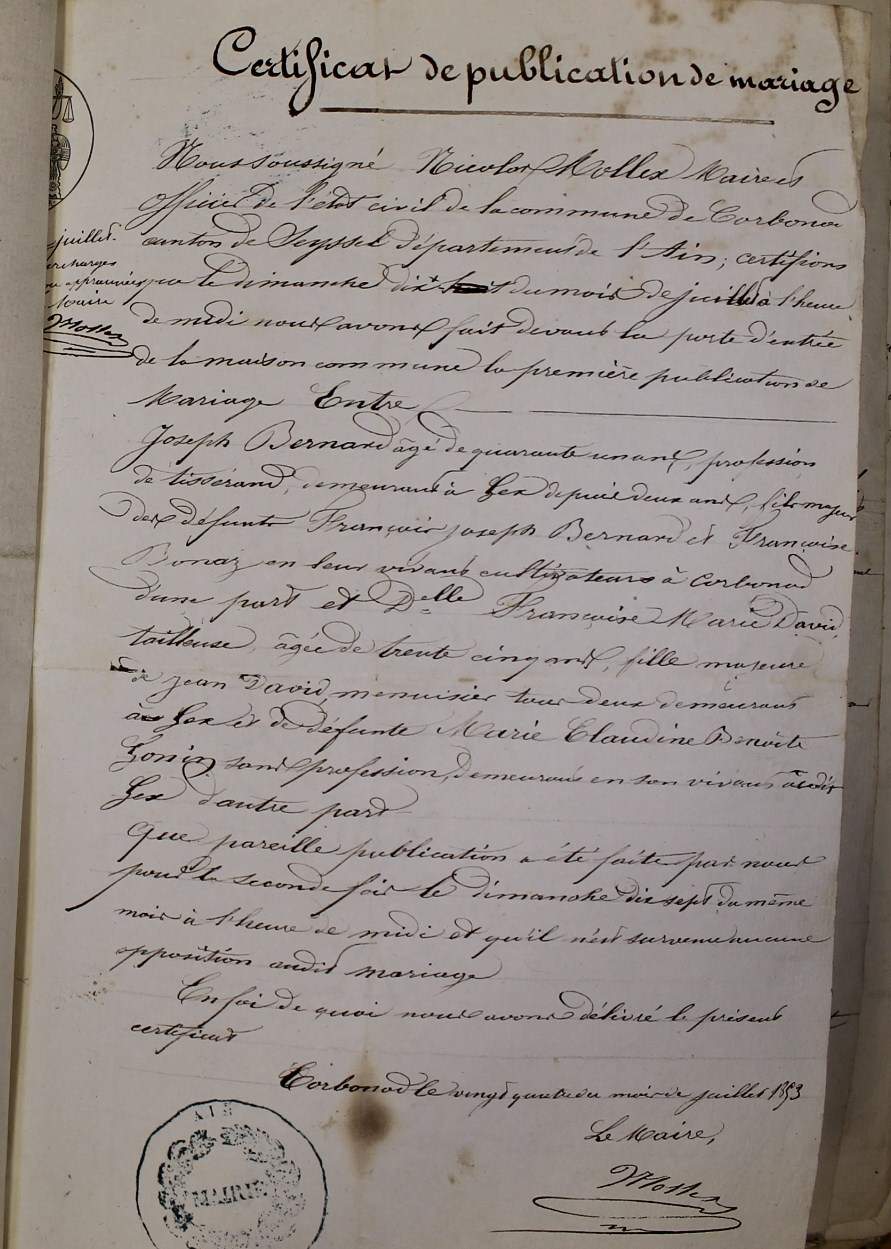 Certificat de publication de mariage
Nous soussigné Nicolas Mollex Maire et
officier de l'etat civil de la commune de Corbonod
canton de Seyssel département de l'Ain, certifions
que le dimanche dix du mois de juillet à l'heure
de midi nous avons fait devant la porte d'entrée
de la maison commune la première publication de
Mariage Entre
Joseph Bernard âgé de quarante un ans, profession
de tisserand, demeurant à Gex depuis deux ans, fils majeur
des défunts François joseph Bernard et Françoise
Bonaz en leur vivant cultivateurs à Corbonod
d'une part et Delle Françoise Marie David,
tailleuse, âgée de trente cinq ans, fille majeure
de jean David, menuisier tous deux demeurant
à Gex et de défunte Marie Claudine Benoite
Gonin, sans profession, demeurant en son vivant audit
Gex d'autre part
Que pareille publication a été faite par nous
pour la seconde fois le dimanche dix sept du même
mois à l'heure de midi et qu'il n'est survenu aucune
opposition audit mariage
En foi de quoi nous avons délivré le présent
certificat
Corbonod le vingt quatre du mois de juillet 1853
Le Maire,
Mollex
juillet.
Maire
Mollex
AIN
MAIRIE